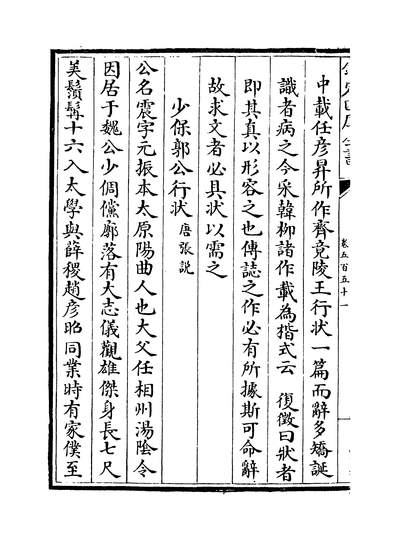 欽定四庫全書
卷五百五十一
中載任彦昇所作齊竟陵王行状一篇而辭多矯誕
識者病之今采韓柳諸作載為楷式云　復徵曰狀者
即其真以形容之也傳誌之作必有所據斯可命辭
故求文者必具狀以需之
少保郭公行狀唐張説
公名震字元振本太原陽曲人也大父任相州湯隂令
因居于魏公少倜儻廓落有大志儀觀雄傑身長七尺
美鬚髯十六入太學與薛稷趙彦昭同業時有家僕至